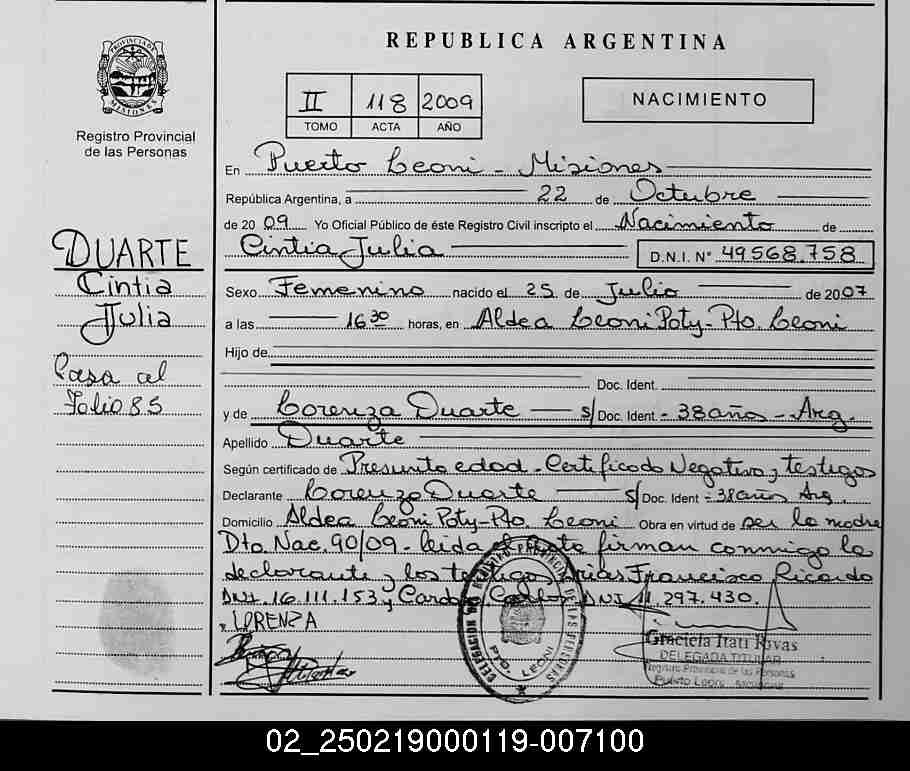 PROVINCIA DE MISIONES
Registro Provincial
de las Personas
REPUBLICA ARGENTINA
II 118 2009
TOMO ACTA AÑO
NACIMIENTO
En Puerto Leoni - Misiones
República Argentina, a 22 de Octubre
de 2009 Yo Oficial Público de éste Registro Civil inscripto el Nacimiento de
Cintia Julia D.N.I. N° 49.568.758
Sexo Femenino nacido el 25 de Julio de 2007
a las 16 30 horas, en Aldea Leoni Poty - Pto. Leoni
Hijo de
Doc. Ident.
y de Lorenza Duarte s/ Doc. Ident. - 38 años - Arg.
Apellido Duarte
Según certificado de Presunta edad - Certificado Negativo y testigos
Declarante Lorenza Duarte s/ Doc. Ident - 38 años Arg.
Domicilio Aldea Leoni Poty - Pto. Leoni Obra en virtud de ser la madre
Dto. Nac. 90/09 - leida el acta firman conmigo la
declarante y los testigos Arias Francisco Ricardo
DNI. 16.111.153 y Cardozo DNI 11.297.430.
LORENZA
DUARTE
Cintia
Julia
Pasa al
Folio 85
PTO. LEONI
Graciela Itati Rivas
DELEGADA TITULAR
Registro Provincial de las Personas
Puerto Leoni Misiones
02_250219000119-007100